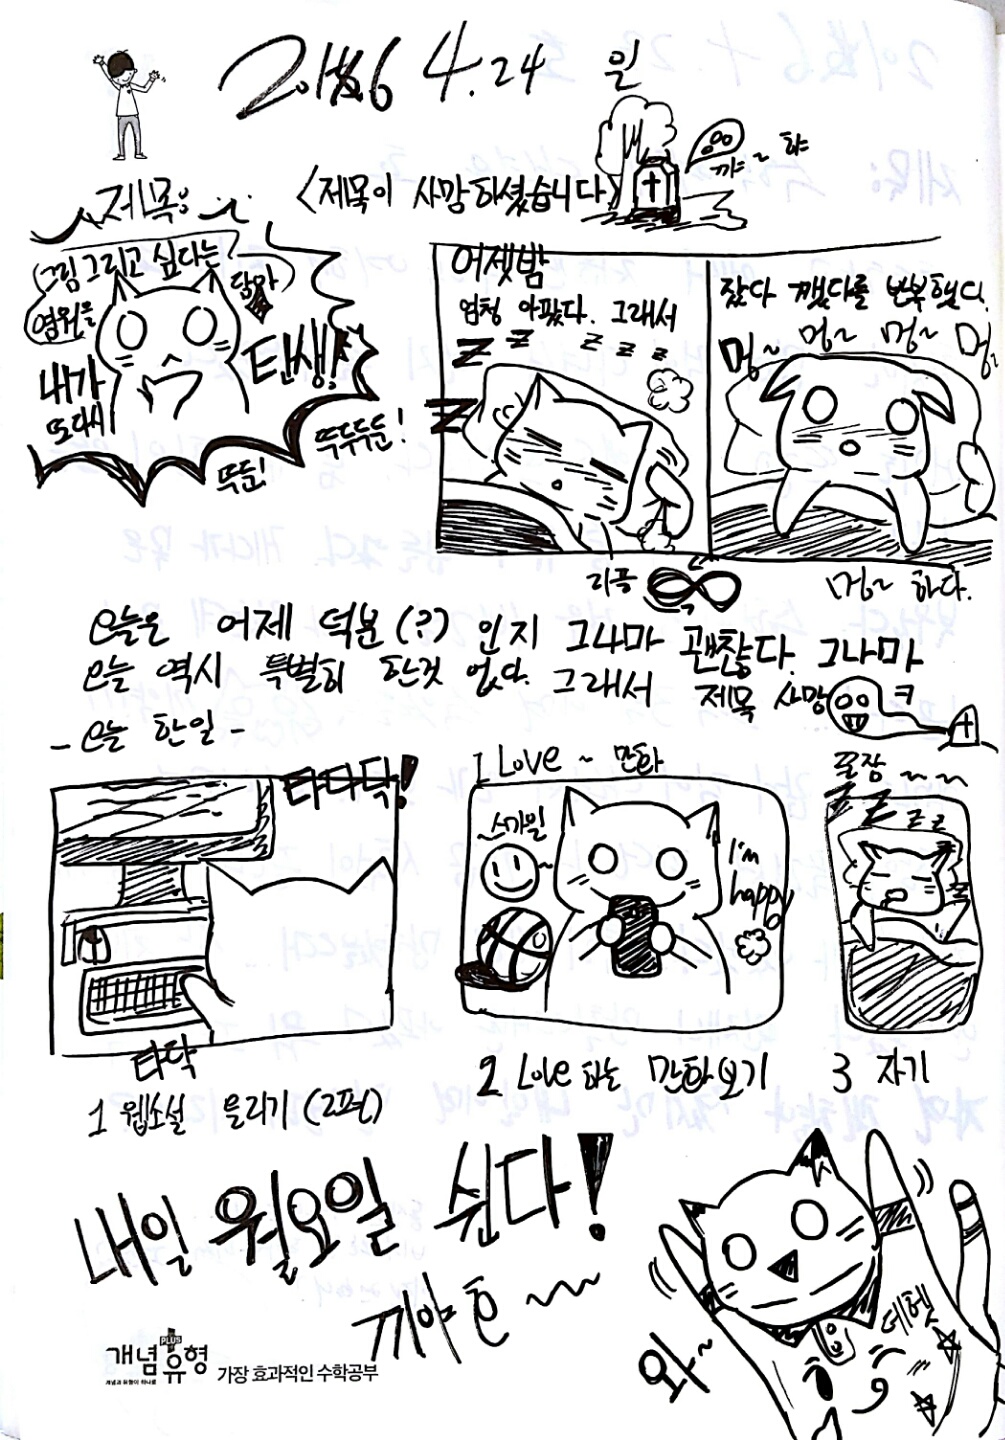 2016 4.24 일
제목: <제목이 사망하셨습니다>
꺄~ 햐
그림 그리고 싶다는
염원을 담아
내가
또다시
탄생!
뚜둔!
뚜두두둔!
어젯밤
엄청 아팠다. 그래서
z z z z z
z
잤다 깼다를 반복했다.
멍~ 멍~ 멍~ 멍~
리플
멍~ 하다.
오늘은 어제 덕분(?) 인지 그나마 괜찮다. 그나마
오늘 역시 특별히 한것 없다. 그래서 제목 사망
ㅋ
- 오늘 한일 -
타다닥!
타닥
1 웹소설 올리기 (2편)
I Love ~ 만화
스마일~
I'm
happy
2 Love 하는 만화보기
꿀잠 ~~
z z z z
3 자기
내일 월요일 쉰다!
끼야호~~
와~
데헷
개념 PLUS 유형
개념과 유형이 하나로
가장 효과적인 수학공부